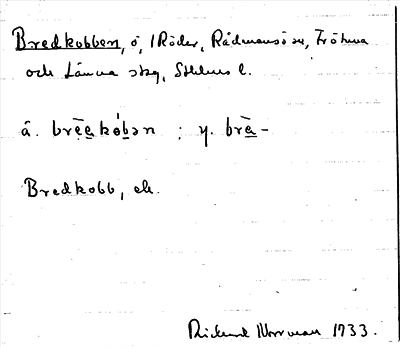 Bredkobben, ö, i Röder, Rådmansö sn, Frötuna
och Länna skg, Sthlms l.
ä. brèe̱kó̱bən ; y. brè̱-
Bredkobb, ek.
Rickard Norrman 1933.